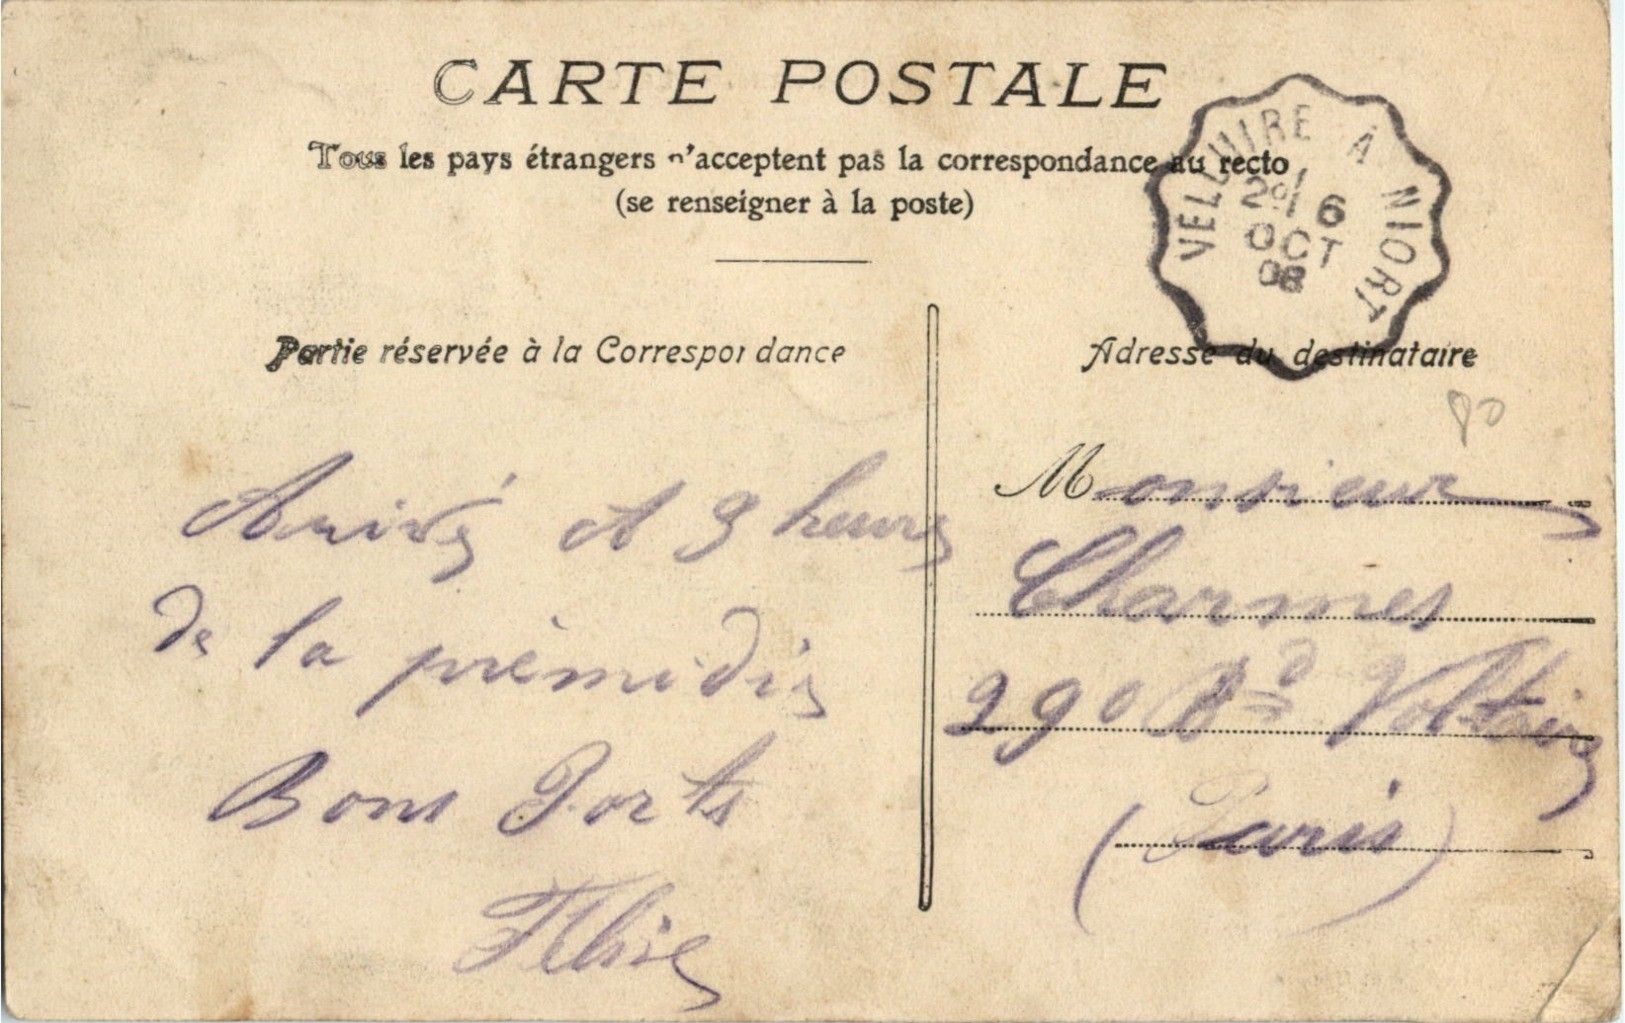 CARTE POSTALE
Tous les pays étrangers n'acceptent pas la correspondance au recto
(se renseigner à la poste)
VELLUIRE À NIORT
6
OCT
08
Partie réservée à la Correspondance
Adresse du destinataire
80
Arrivé A 9 heures
de la prémidie
Bons Ports
Monsieur
Charmes
290 Bd Voltaire
(Paris)